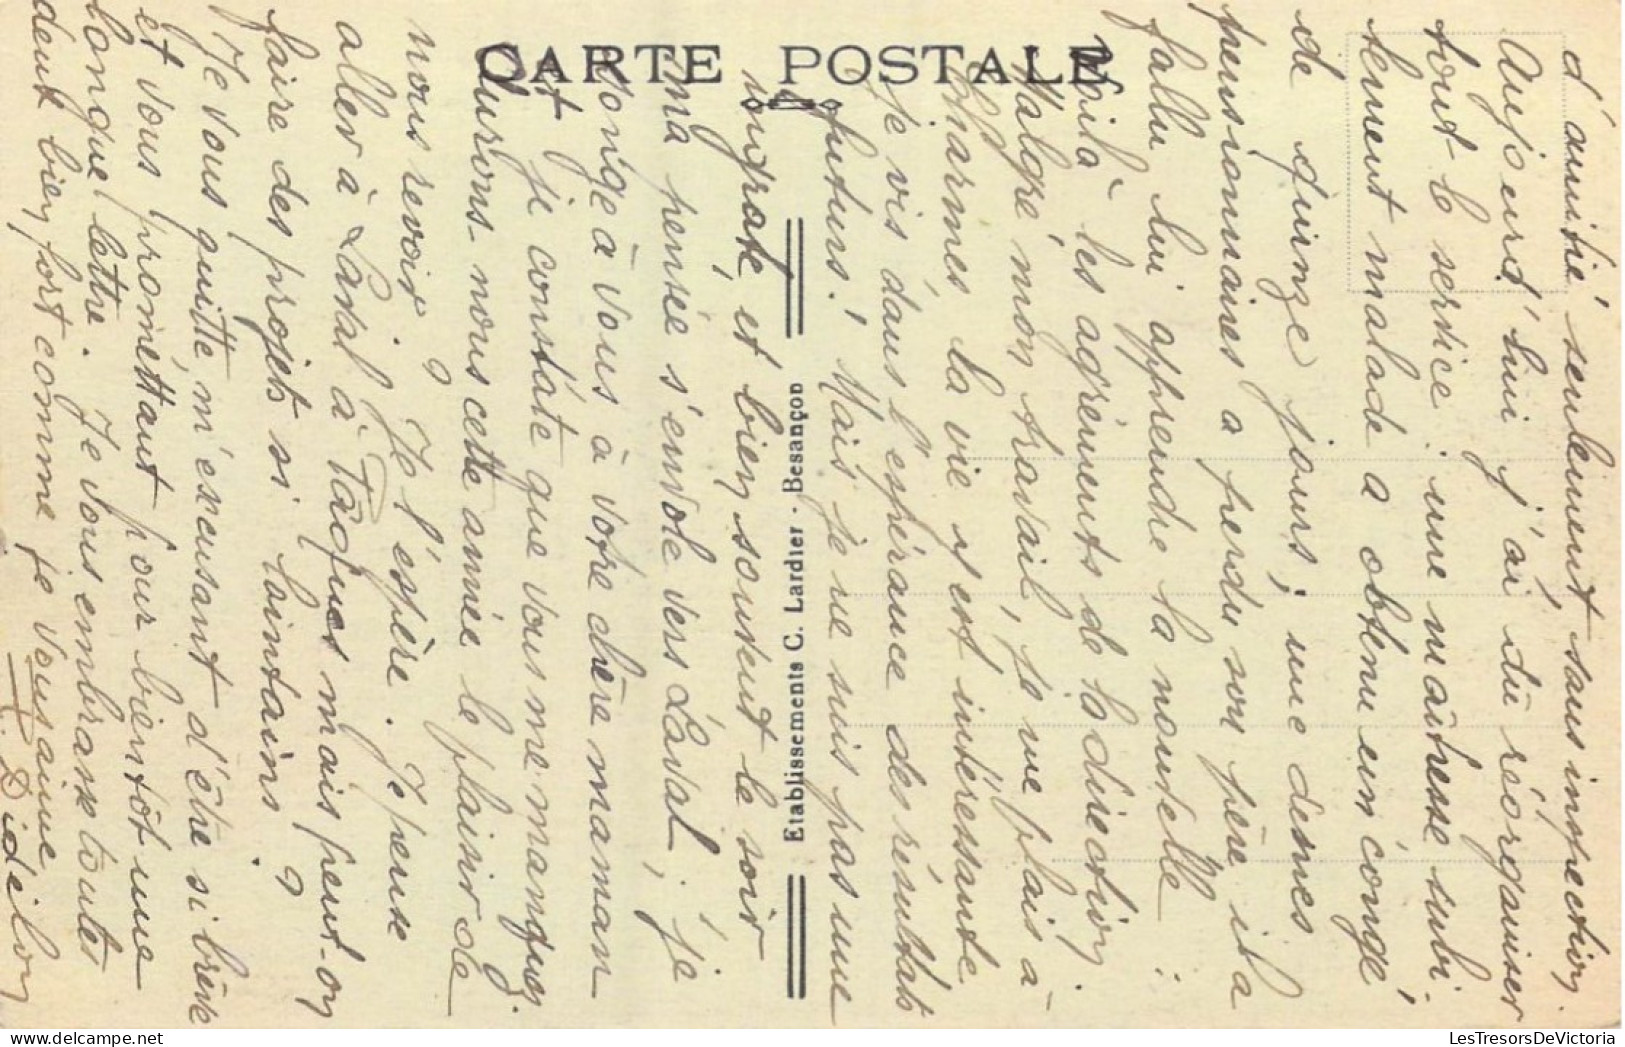 CARTE POSTALE
Etablissements C. Lardier - Besançon
d'amitié seulement, sans inspection.
Aujourd'hui j'ai dû réorganiser
tout le service : une maîtresse subi-
tement malade a obtenu un congé
de quinze jours ; une de mes
pensionnaires a perdu son père, il a
fallu lui apprendre la nouvelle :
voilà les agréments de la direction
Malgré mon travail, je me plais à
Charmes, la vie y est intéressante
je vis dans l'espérance des résultats
futurs ! Mais je ne suis pas une
ingrate, et bien souvent le soir
ma pensée s'envole vers Laval ; je
songe à vous à votre chère maman
et je constate que vous me manquez.
Aurons-nous cette année le plaisir de
nous revoir ? Je l'espère. Je pense
aller à Laval à Pâques mais peut-on
faire des projets si lointains ?
Je vous quitte, m'excusant d'être si brève
et vous promettant pour bientôt une
longue lettre. Je vous embrasse toutes
deux bien fort comme je vous aime
LesTresorsDeVictoria